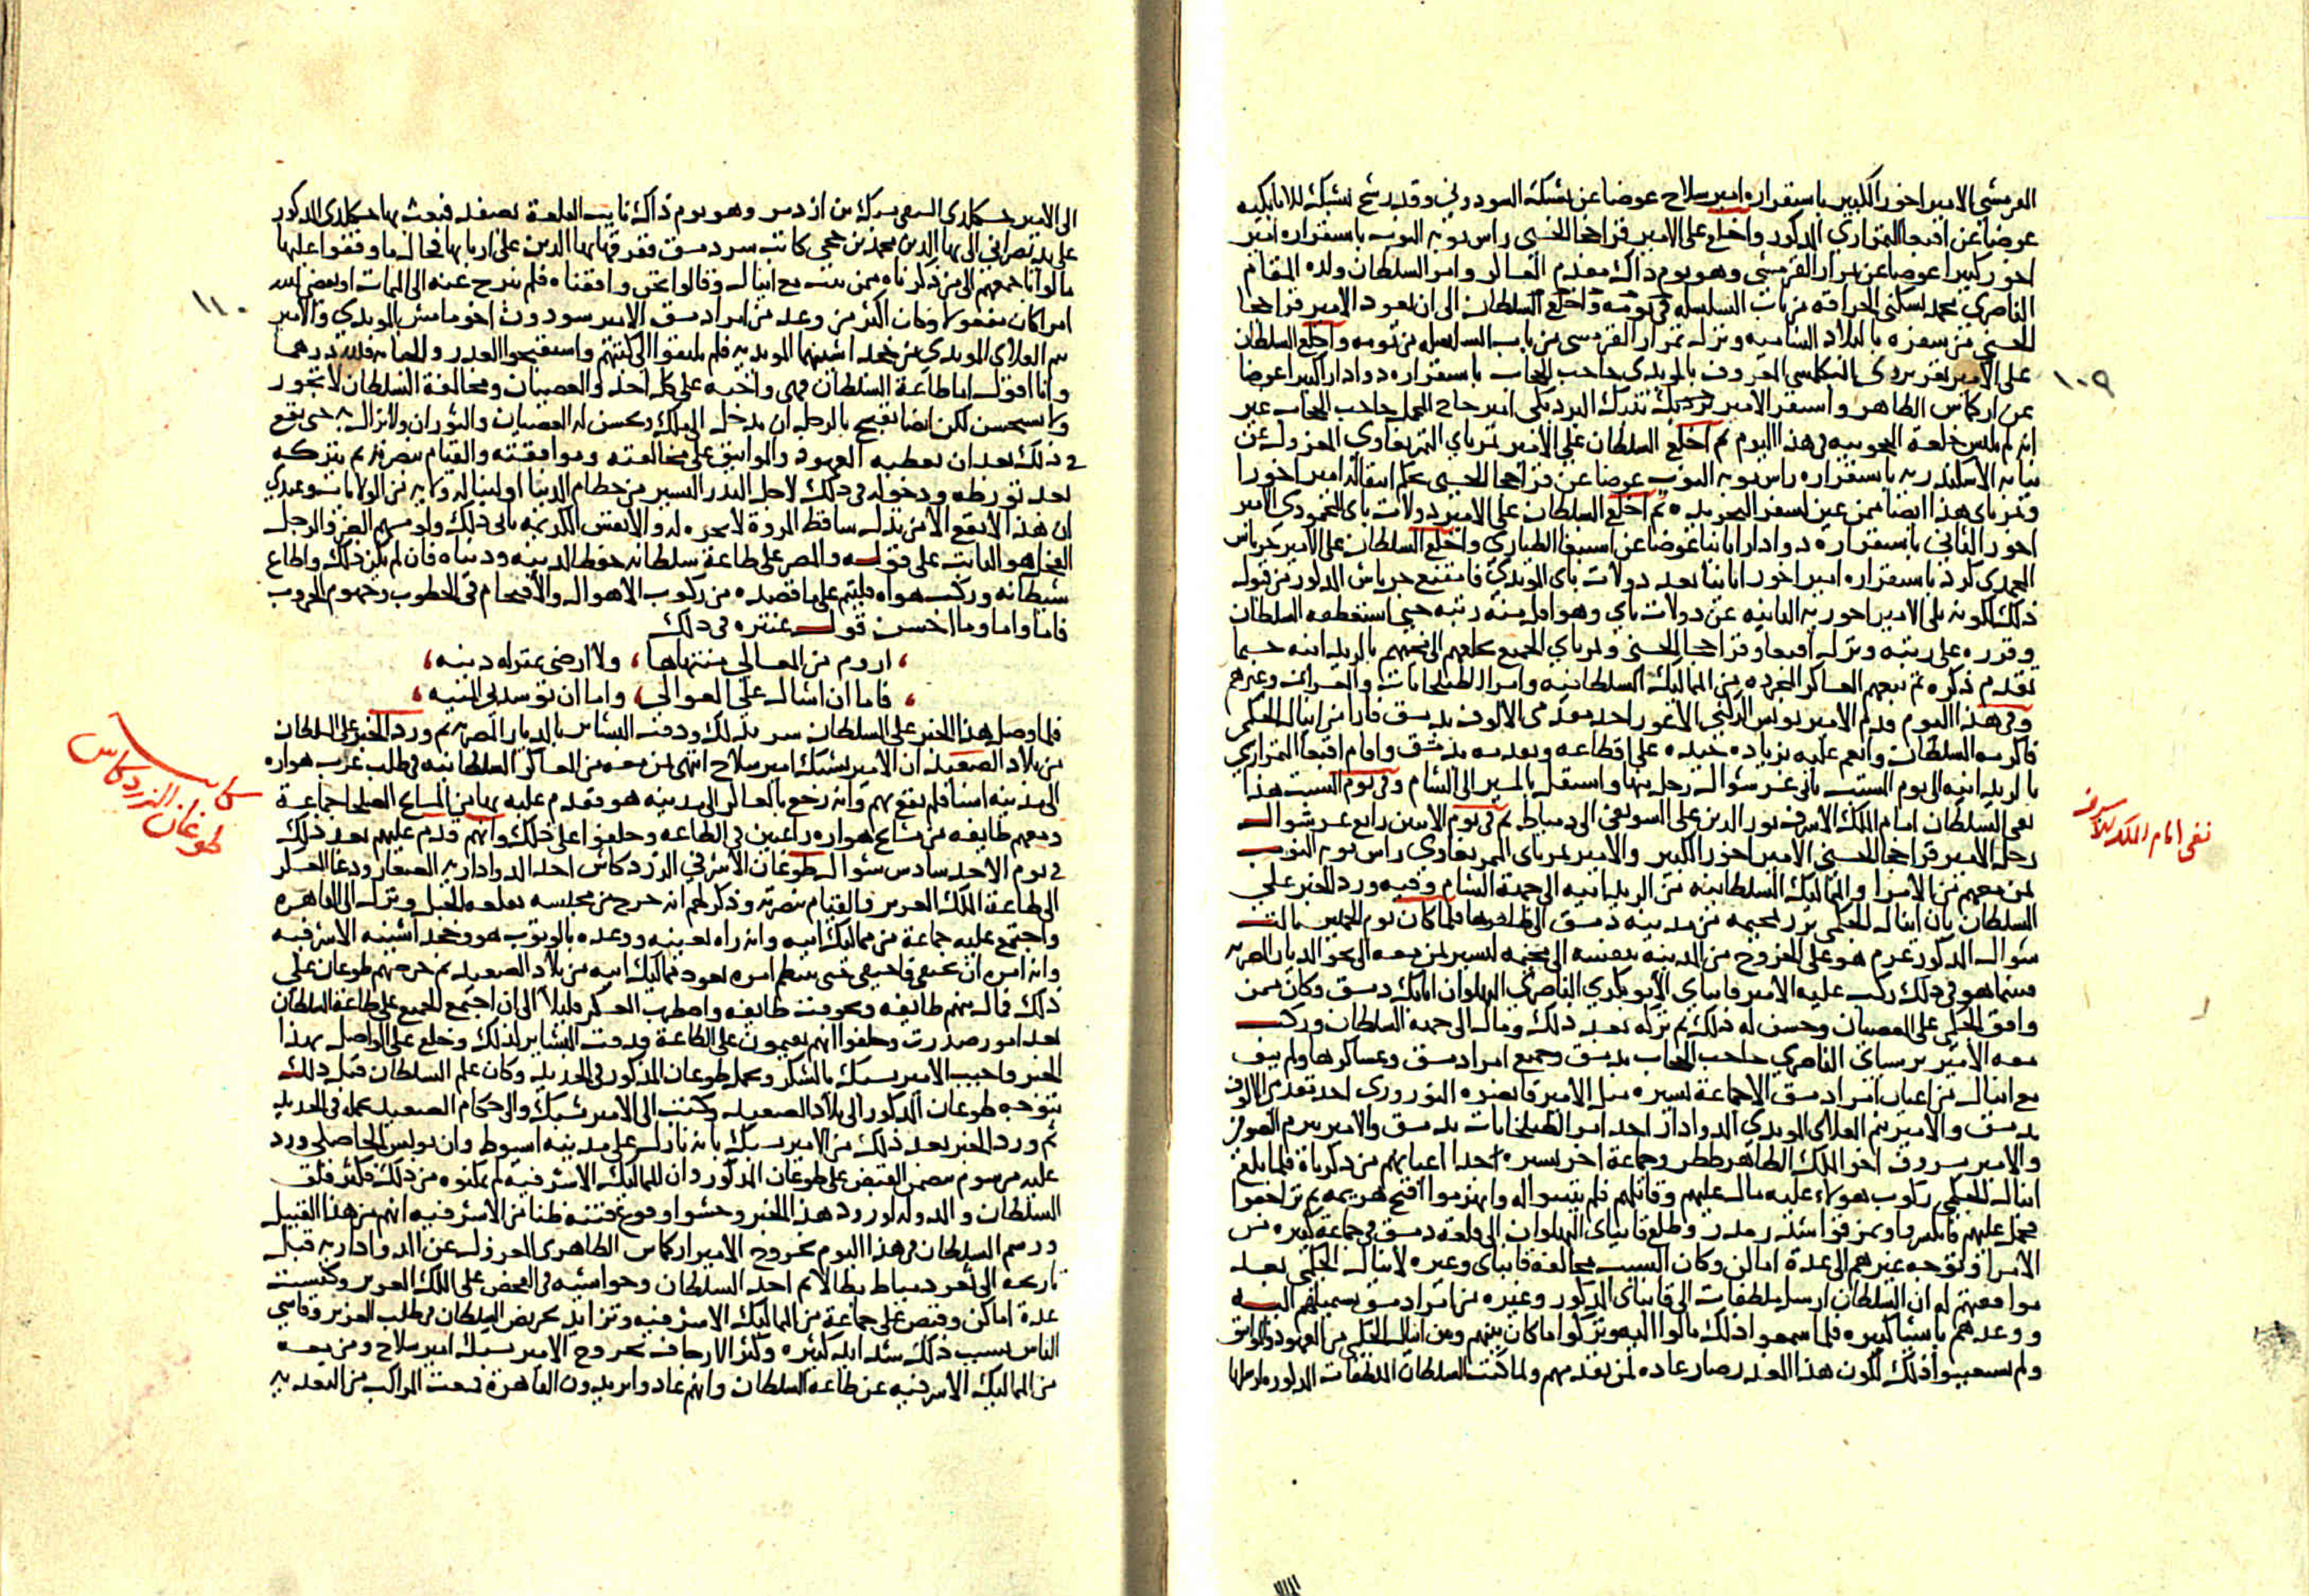 القرمشي الامير اخور الكبير باستقراره امير سلاح عوضا عن يشبك السودوني وقد رشح يشبك للاتابكيه
عوضا عن اقبغا التمرازي المذكور واخلع على الامير قراجا الحسني راس نوبه النوب باستقراره امير
اخور كبيرا عوضا عن تمراز القرمشي وهو يوم ذاك مقدم العساكر وامر السلطان ولده المقام
الناصري محمد بسكنى الحراقه من باب السلسله في يومه واخلع السلطان الى ان يعود الامير قراجا
الحسني من سفره بالبلاد الشاميه ونزل تمراز القرمشي من باب السلسله من يومه واخلع السلطان
على الامير تغري بردي البكلمشي المعروف بالمويدي حاجب الحجاب باستقراره دوادارا كبيرا عوضا
١٠٩
عن اركماس الظاهري واستقر الامير تنبك البردبكي امير حاج المحمل حاجب الحجاب غير
انه لم يلبس خلعة الحجوبيه في هذا اليوم ثم اخلع السلطان على الامير تمرباي التمربغاوي المعزول عن
نيابه الاسكندريه باستقراره راس نوبه النوب عوضا عن قراجا الحسني بحكم انتقاله امير اخورا
وتمرباي هذا ايضا ممن عين لسفر التجريده ثم اخلع السلطان على الامير دولات باي المحمودي الامير
اخور الثاني باستقراره دوادارا ثانيا عوضا عن اسنبغا الطياري واخلع السلطان على الامير جرباش
المحمدي كرد باستقراره امير اخور ثانيا بعد دولات باي المويدي فامتنع جرباش المذكور من قبوله
ذلك لكونه يلي الامير اخوريه الثانيه عن دولات باي وهو اقل منه رتبه حتى استعطفه السلطان
وقرره على رتبته ونزل اقبغا وقراجا الحسني وتمرباي الجميع بخلعهم الى مخيمهم بالريدانيه حسبما
تقدم ذكره ثم تبعهم العساكر المجرده من المماليك السلطانيه وامرا الطبلخانات والعشرات وغيرهم
وفي هذا اليوم قدم الامير يونس الركني الاعور احد مقدمي الالوف بدمشق فارا من اينال الجكمي
فاكرمه السلطان وانعم عليه بزياده جيده على اقطاعه وتقدمته بدمشق واقام اقبغا التمرازي
بالريدانيه الى يوم السبت ثاني عشر شوال رحل منها واستقل بالمسير الى الشام وفي يوم السبت هذا
نفى السلطان امام الملك الاشرف نور الدين علي السويفي الى دمياط ثم في يوم الاثنين رابع عشر شوال
نفى امام الملك الاشرف
رحل الامير قراجا الحسني الامير اخور الكبير والامير تمرباي التمربغاوي راس نوبه النوب
بمن معهم من الامرا والمماليك السلطانيه من الريدانيه الى جهة الشام وفيه ورد الخبر على
السلطان بان اينال الجكمي برز بمخيمه من مدينه دمشق الى ظاهرها فلما كان يوم الخميس ثالث
شوال المذكور عزم هو على الخروج من المدينه بنفسه الى مخيمه ليسير بمن معه الى نحو الديار المصريه
فبينما هو في ذلك ركب عليه الامير قانباي الابوبكري الناصري البهلوان اتابك دمشق وكان ممن
وافق الجكمي على العصيان وحسن له ذلك ثم تركه بعد ذلك ومال الى جهة السلطان وركب
معه الامير برسباي الناصري حاجب الحجاب بدمشق وجميع امرا دمشق وعساكرها ولم يبق
مع اينال من اعيان امرا دمشق الا جماعة يسيره مثل الامير قانصوه النوروزي احد مقدمي الالوف
بدمشق والامير تنم العلاي المويدي الدوادار احد امرا الطبلخانات بدمشق والامير بيرم الصوفي
والامير مسروق اخو الملك الظاهر ططر وجماعة اخر يسيره احدا اعيانهم من ذكرناه فلما بلغ
اينال الجكمي ركوب هولاء عليه مال عليهم وقاتلهم فلم يثبتوا له وانهزموا اقبح هزيمه ثم تراجعوا
فحمل عليهم فانكسروا وتمزقوا شذر مذر وطلع قانباي البهلوان الى قلعة دمشق في جماعة كبيره من
الامرا وتوجه غيرهم الى عدة اماكن وكان السبب مخالفة قانباي وغيره لاينال الجكمي بعد
موافقتهم له ان السلطان ارسل ملطفات الى قانباي المذكور وغيره من امرا دمشق يستميلهم اليه
ووعدهم باشيا كثيره فلما سمعوا ذلك مالوا اليه وتركوا ما كان بينهم وبين اينال الجكمي من العهود والمواثيق
ولم يستعيبوا ذلك لكون هذا الغدر صار عاده لمن تقدمهم ولما كتب السلطان الملطفات المذكوره ارسلها
الى الامير جكم لدى السيفي يبرك من ازدمر وهو يوم ذاك نايب القلعة بصفد فبعث بها المذكور
على يد نصراني الى بها الدين محمد بن حجي كاتب سر دمشق ففرقها بها الدين على اربابها فحال ما وقفوا عليها
مالوا باجمعهم الى من ذكرناه ممن ثبت مع اينال وقالوا نحن وافقناه فلم نبرح عنه الى الممات او يقضي الله
١١٠
امرا كان مفعولا وكان اكثر من وعد من امرا دمشق الامير سودون اخو مامش المويدي والامير
تنم العلاي المويدي من خجداشيتهما المويديه فلم يلتفتوا الى كتبهم واستقبحوا الغدر والخيانه فلله درهما
وانا اقول اما طاعة السلطان فهي واجبه على كل احد والعصيان ومخالفة السلطان لا تجوز
ولا تستحسن لكن ايضا يقبح بالرجل ان يدخل الى الملك ويحسن له العصيان والثوران ولا يزال به حتى يقع
في ذلك بعد ان يعطيه العهود والمواثيق على مخالفته وموافقته والقيام بنصرته ثم يتركه
بعد تورطه ودخوله في ذلك لاجل النذر اليسير من حطام الدنيا او لينال ولايه من الولايات وعندي
ان هذا لا يقع الا من نذل ساقط المروة لا نخوه له والانفس الكريمه تابى ذلك ولو مسهم الضر والرجل
الفحل هو الثابت على قوله والمصر على طاعة سلطانه حفظا لدينه ودنياه فان لم يكن ذلك واطاع
شيطانه وركب هواه فليتم على ما قصده من ركوب الاهوال والاقتحام في الخطوب وهجوم الحروب
فاما واما وما احسن قول عنتره في ذلك
، اروم من المعالي منتهاها ، ولا ارضى بمنزله دنيه ،
، فاما ان اشال على العوالي ، واما ان توسدني المنيه ،
فلما وصل هذا الخبر على السلطان سر بذلك ودقت البشاير بالديار المصريه ثم ورد الخبر على السلطان
من بلاد الصعيد ان الامير يشبك امير سلاح انتهى بمن معه من العساكر السلطانيه في طلب عرب هواره
الى مدينه اسنا فلم يقع بهم وانه رجع بالعساكر الى مدينه هو فقدم عليه بها من المشايخ الصلحا جماعة
ومعهم طايفه من مشايخ هواره راغبين في الطاعه وحلفوا على ذلك وانهم قدم عليهم بعد ذلك
في يوم الاحد سادس شوال طوغان الاشرفي الزردكاش احد الدواداريه الصغار ودعا العسكر
كاينة طوغان الزردكاش
الى طاعة الملك العزيز والقيام بنصرته وذكر لهم انه خرج من محبسه بقلعه الجبل ونزل الى القاهره
واجتمع عليه جماعة من مماليك ابيه وانه راه بعينه ووعده بالوثوب هو وخجداشيته الاشرفيه
وانه امره ان يختفي فاختفى حتى ينتظم امره بعود مماليك ابيه من بلاد الصعيد ثم حرضهم طوغان على
ذلك فمال منهم طايفه وتخوفت طايفه واضطرب العسكر قليلا الى ان اجتمع الجميع على طاعة السلطان
بعد امور صدرت وحلفوا انهم مقيمون على الطاعة ودقت البشاير لذلك وخلع على الواصل بهذا
الخبر واجيب الامير يشبك بالشكر وبحمل طوغان المذكور في الحديد وكان علم السلطان قبل ذلك
بتوجه طوغان المذكور الى بلاد الصعيد وكتب الى الامير يشبك والى حكام الصعيد بحمله في الحديد
ثم ورد الخبر بعد ذلك من الامير يشبك بانه نازل على مدينه اسيوط وان يونس الخاصكي ورد
عليه بمرسوم يتضمن القبض على طوغان المذكور وان المماليك الاشرفيه لم يمكنوه من ذلك فكثر قلق
السلطان والدوله لورود هذا الخبر وخشوا وقوع فتنه ظنا من الاشرفيه انهم من هذا القبيل
ورسم السلطان في هذا اليوم بخروج الامير اركماس الظاهري المعزول عن الدواداريه قبل
تاريخه الى ثغر دمياط بطالا ثم اخذ السلطان وحواشيه في الفحص على الملك العزيز وكبست
عدة اماكن وقبض على جماعة من المماليك الاشرفيه وتزايد تحريض السلطان في طلب العزيز وقاسى
الناس بسبب ذلك شدايد كثيره وكثر الارجاف بخروج الامير يشبك امير سلاح ومن معه
من المماليك الاشرفيه عن طاعه السلطان وانهم عادوا يريدون القاهرة فبعث المراكب من التعديه